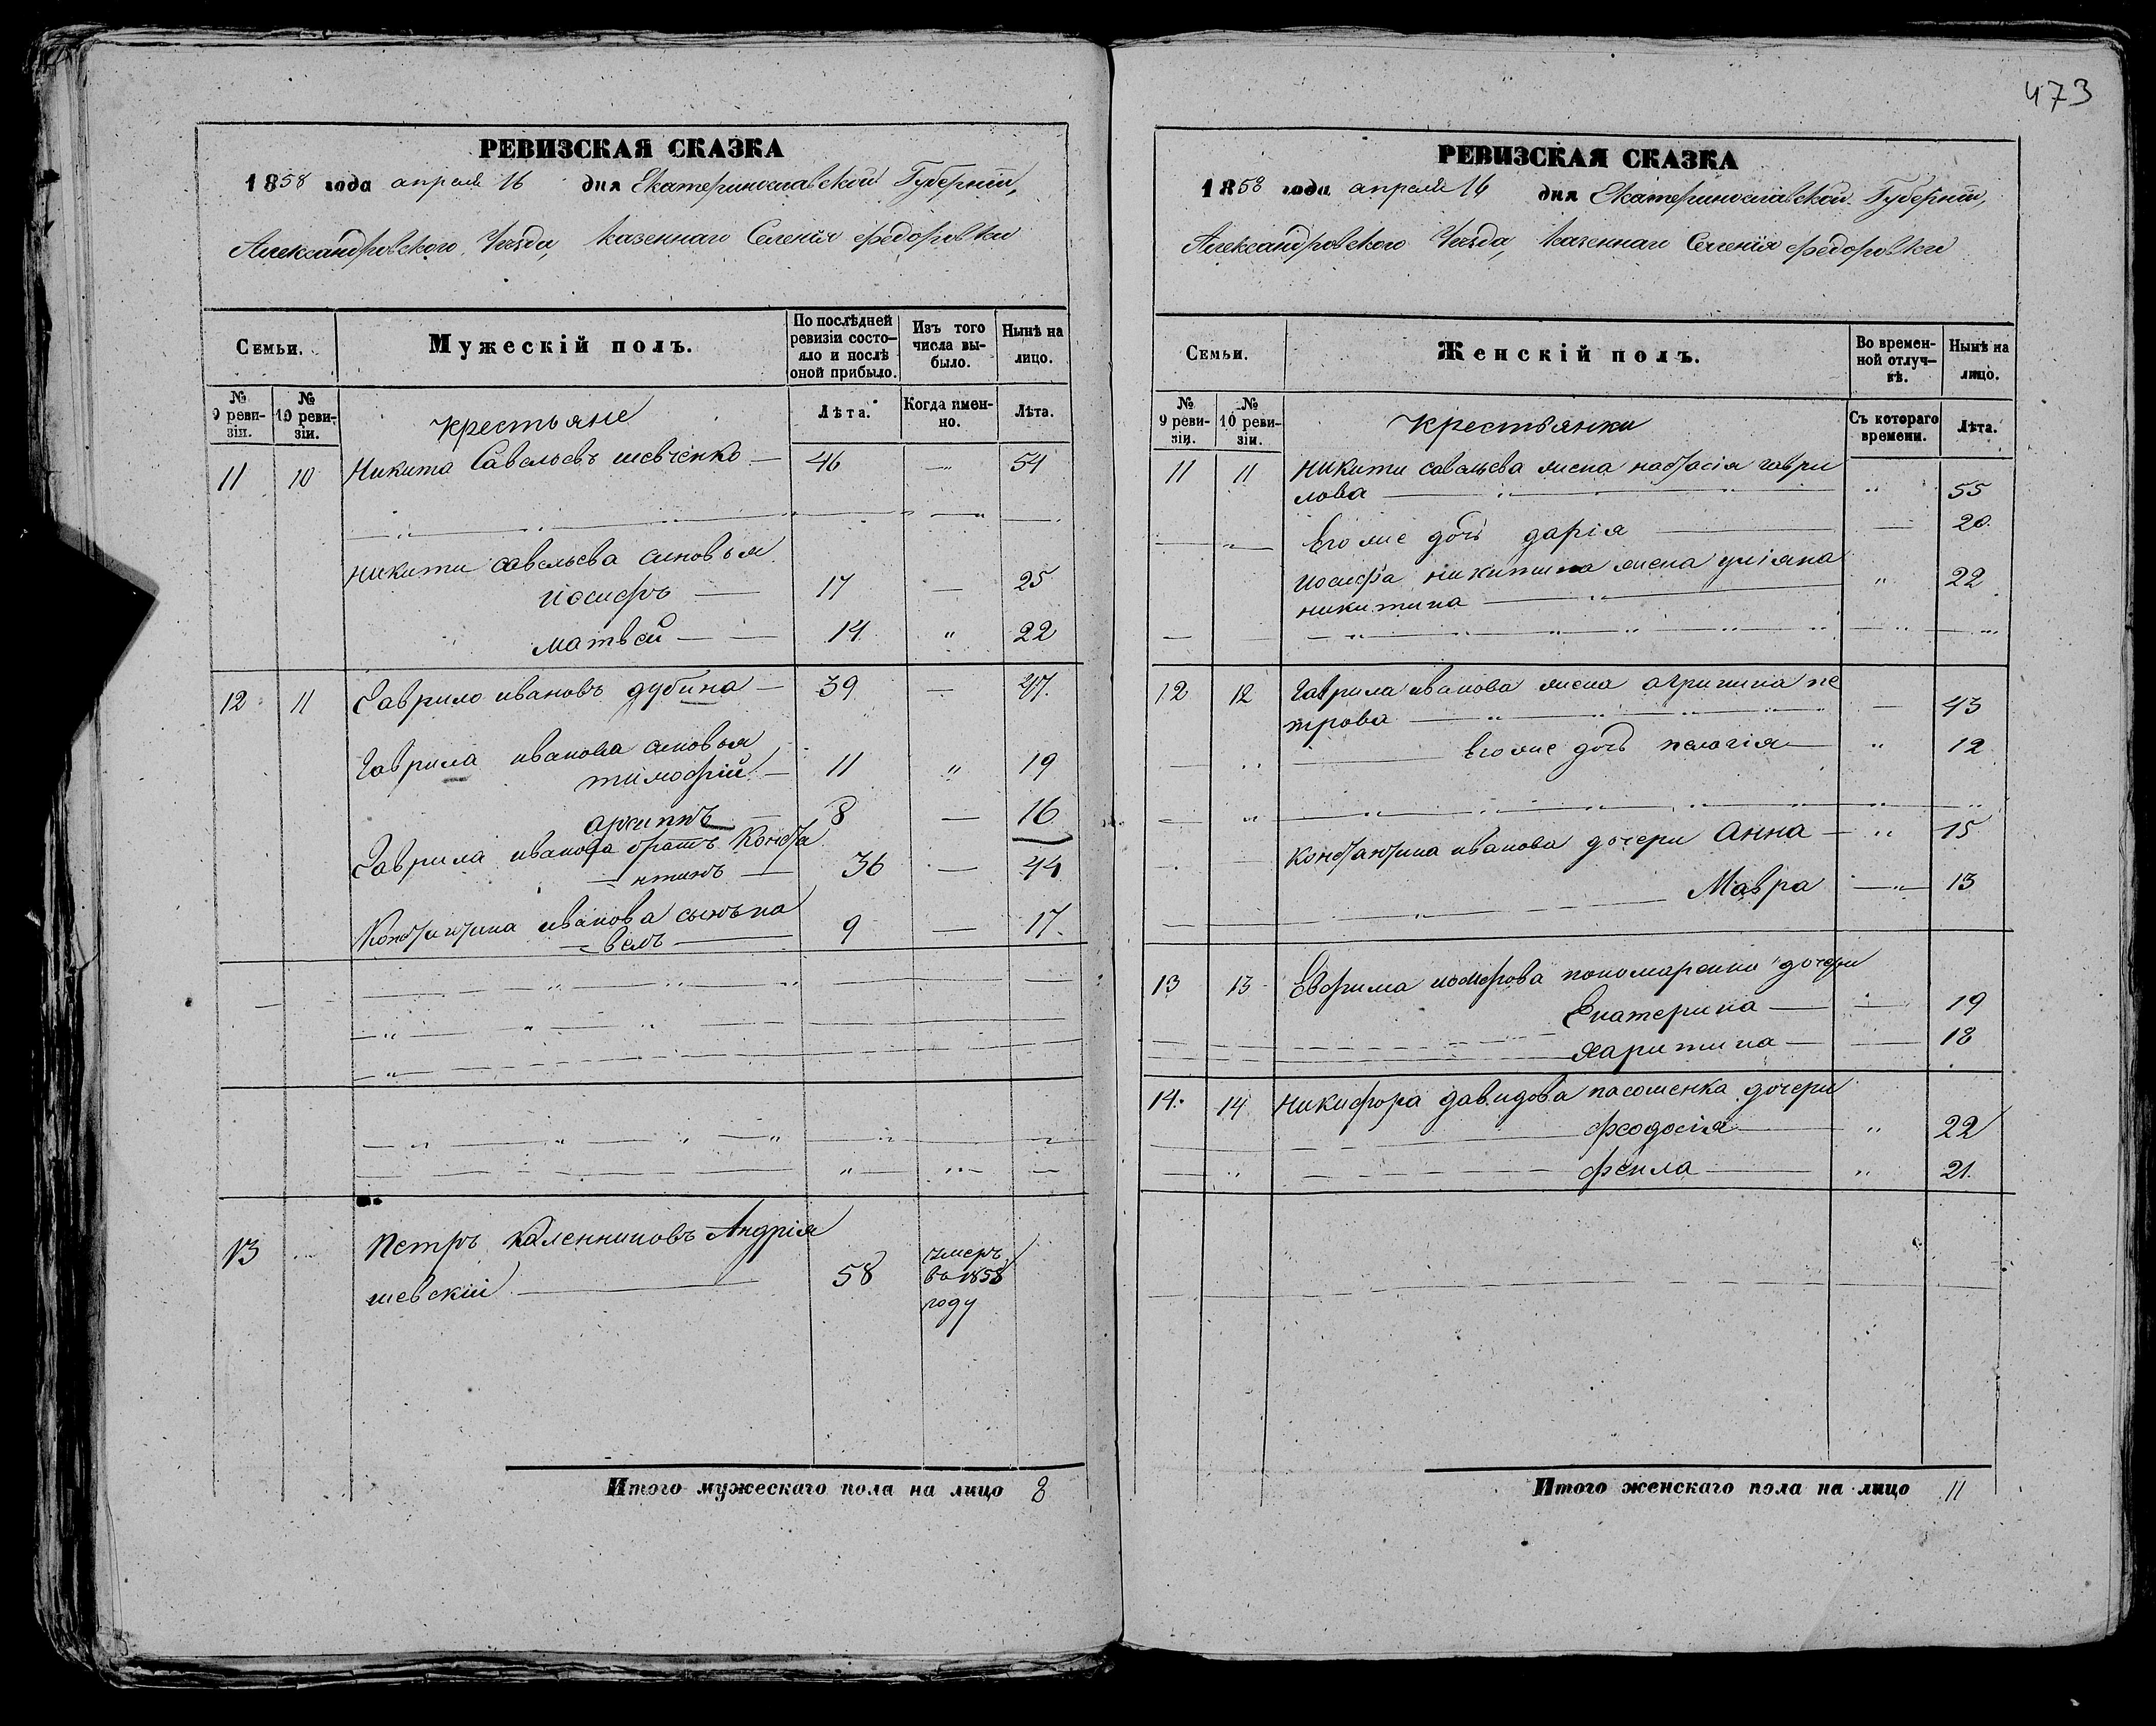 473
РЕВИЗСКАЯ СКАЗКА
1858 года апреля 16 дня Екатеринославской Губерніи,
Александровского Уезда, Казеннаго Селенія Федоровки
Семьи.
Мужескій полъ.
По послѣдней ревизіи состояло и послѣ оной прибыло.
Изъ того числа выбыло.
Нынѣ на лицо.
№ 9 ревизіи.
№ 10 ревизіи.
Лѣта.
Когда именно.
Лѣта.
Крестьяне
11 10 Никита Савельевъ шевченко 46 54
никити савельева сыновья
иосифъ 17 25
матвей 14 22
12 11 Гаврило ивановъ дубина 39 47.
Гаврила иванова сыновья
тимофій 11 19
архипъ 8 16
Гаврила иванова братъ Конста
нтинъ 36 44
Константина иванова сынъ па
велъ 9 17.
13 Петръ Каленниковъ Андрія
шевскій 58 умеръ
въ 1858
году
Итого мужескаго пола на лицо 8
РЕВИЗСКАЯ СКАЗКА
1858 года апреля 16 дня Екатеринославской Губерніи,
Александровского Уезда, Казеннаго Селенія Федоровки
Семьи.
Женскій полъ.
Во временной отлучкѣ.
Нынѣ на лицо.
№ 9 ревизіи.
№ 10 ревизіи.
Съ котораго времени.
Лѣта.
Крестьянки
11 11 никити савельева жена настасія гаври
лова 55
Его же дочь дарія 20.
иосифа никитина жена уліяна
никитина 22
12 12 Гаврила иванова жена агрипина пе
трова 43
Его же дочь пелагія 12
Константина иванова дочери Анна 15
Мавра 13
13 13 Евфима иосифова пономаренки дочери
Екатерина 19
Харитина 18
14. 14 Никифора давидова пасошенка дочери
феодосія 22
фекла 21.
Итого женскаго пола на лицо 11